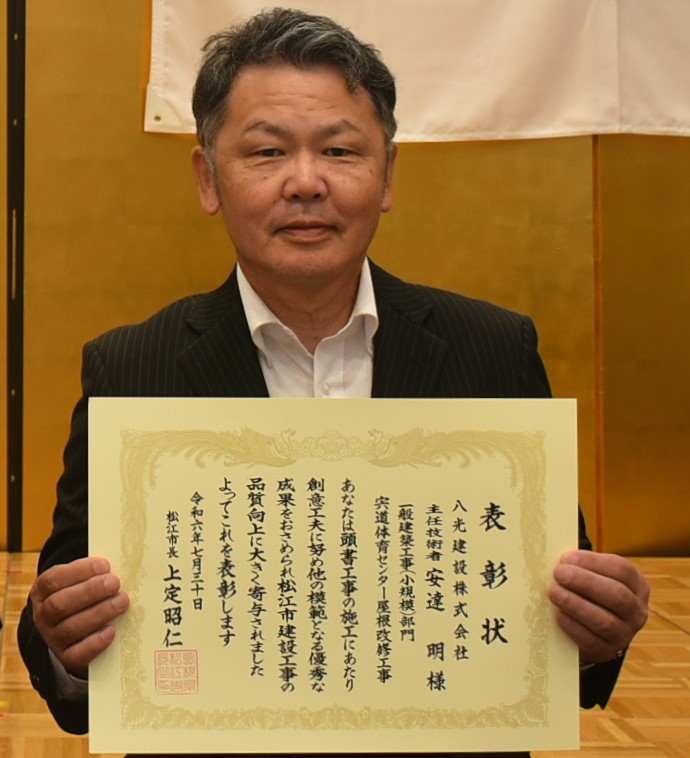 表彰状
八光建設株式会社
主任技術者 安達 明 様
一般建築工事(小規模)部門
宍道体育センター屋根改修工事
あなたは頭書工事の施工にあたり
創意工夫に努め他の模範となる優秀な
成果をおさめられ松江市建設工事の
品質向上に大きく寄与されました
よってこれを表彰します
令和六年七月三十日
松江市長 上定昭仁